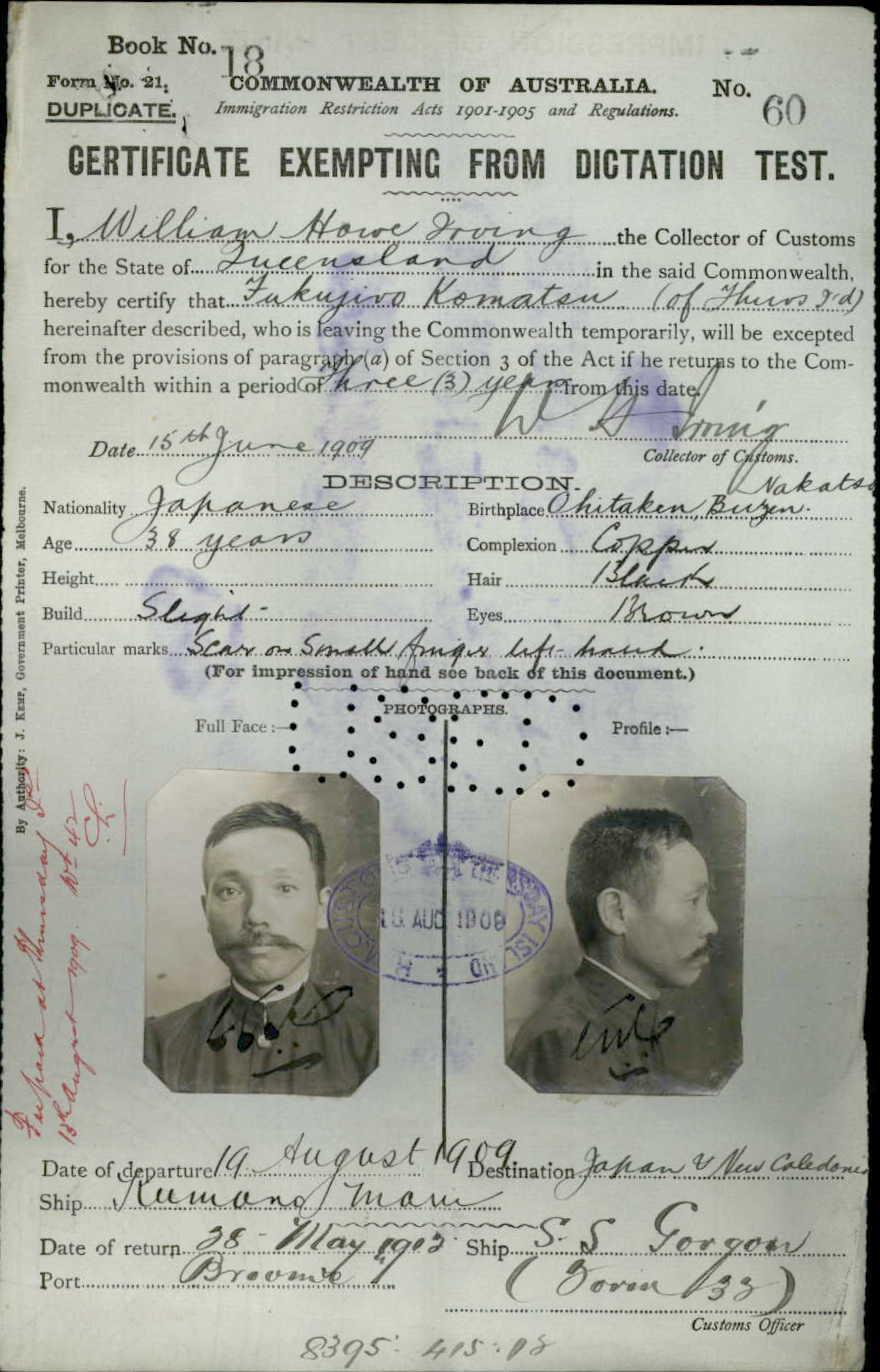 Book No. 18
Form No. 21.
COMMONWEALTH OF AUSTRALIA.
No. 60
DUPLICATE.
Immigration Restriction Acts 1901-1905 and Regulations.
CERTIFICATE EXEMPTING FROM DICTATION TEST.
I, William Howe Irving the Collector of Customs
for the State of Queensland in the said Commonwealth,
hereby certify that Fukujiro Komatsu (of Thurs I'd)
hereinafter described, who is leaving the Commonwealth temporarily, will be excepted
from the provisions of paragraph (a) of Section 3 of the Act if he returns to the Com-
monwealth within a period of Three (3) years from this date.
W H Irving
Date 15th June 1909
Collector of Customs.
DESCRIPTION.
Nationality Japanese
Birthplace Ohitaken, Buzen. Nakatsu
Age 38 years
Complexion Copper
Height
Hair Black
Build Slight
Eyes Brown
Particular marks Scar on Small finger left hand.
(For impression of hand see back of this document.)
PHOTOGRAPHS.
Full Face :—
Profile :—
By Authority: J. Kemp, Government Printer, Melbourne.
Prepared at Thursday Id
13th August 1909. No 42
THURSDAY ISLAND
AUG 1909
Date of departure 19 August 1909
Destination Japan & New Caledonia
Ship Kumano Maru
Date of return 28 May 1912
Ship S. S Gorgon
Port Broome
(Form 32)
Customs Officer
8395. 415. 12